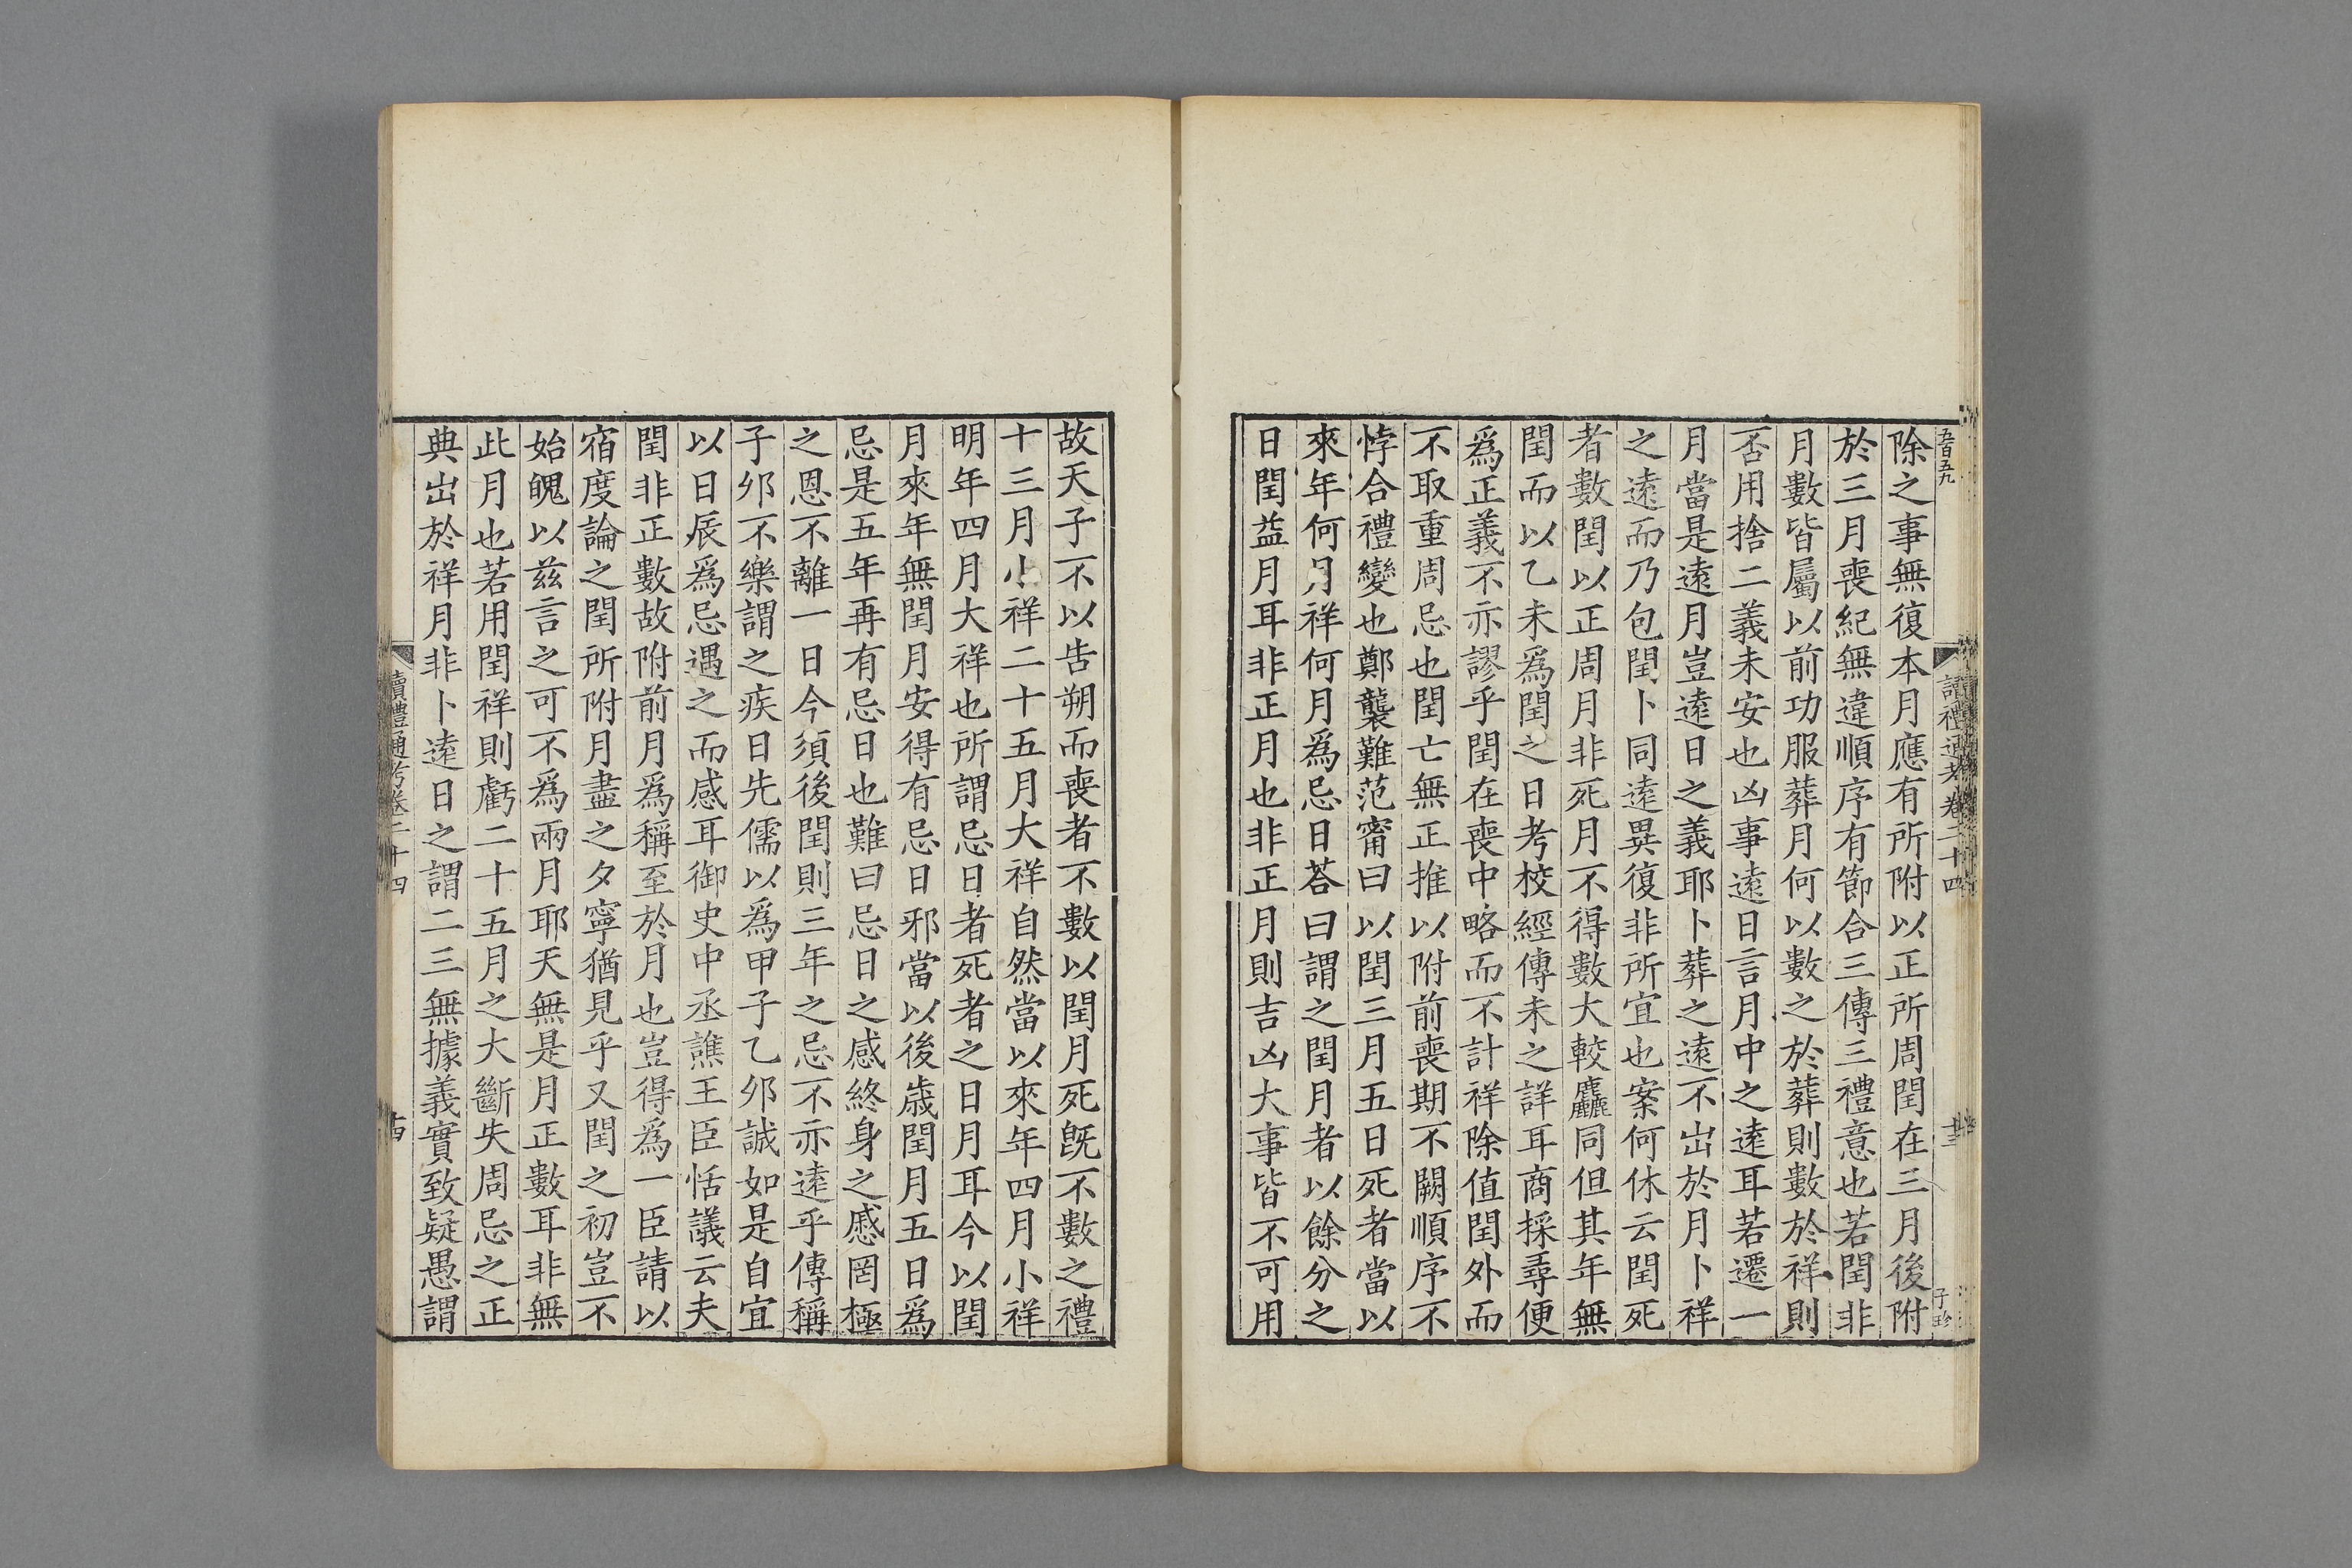 五百五九
讀禮通考卷二十四
十三
除之事無復本月應有所附以正所周閏在三月後附
於三月喪紀無違順序有節合三傳三禮意也若閏非
月數皆屬以前功服葬月何以數之於葬則數於祥則
否用捨二義未安也凶事遠日言月中之遠耳若遷一
月當是遠月豈遠日之義耶卜葬之遠不出於月卜祥
之遠而乃包閏卜同遠異復非所宜也案何休云閏死
者數閏以正周月非死月不得數大較麤同但其年無
閏而以乙未爲閏之日考校經傳未之詳耳商採尋便
爲正義不亦謬乎閏在喪中略而不計祥除值閏外而
不取重周忌也閏亡無正推以附前喪期不闕順序不
悖合禮變也鄭襲難范甯曰以閏三月五日死者當以
來年何月祥何月爲忌日荅曰謂之閏月者以餘分之
日閏益月耳非正月也非正月則吉凶大事皆不可用
故天子不以告朔而喪者不數以閏月死旣不數之禮
十三月小祥二十五月大祥自然當以來年四月小祥
明年四月大祥也所謂忌日者死者之日月耳今以閏
月來年無閏月安得有忌日邪當以後歲閏月五日爲
忌是五年再有忌日也難曰忌日之感終身之慼罔極
之恩不離一日今須後閏則三年之忌不亦遠乎傳稱
子夘不樂謂之疾日先儒以爲甲子乙夘誠如是自宜
以日辰爲忌遇之而感耳御史中丞譙王臣恬議云夫
閏非正數故附前月爲稱至於月也豈得為一臣請以
宿度論之閏所附月盡之夕寧猶見乎又閏之初豈不
始魄以茲言之可不爲兩月耶天無是月正數耳非無
此月也若用閏祥則虧二十五月之大斷失周忌之正
典出於祥月非卜遠日之謂二三無據義實致疑愚謂
讀禮通考卷二十四
十四